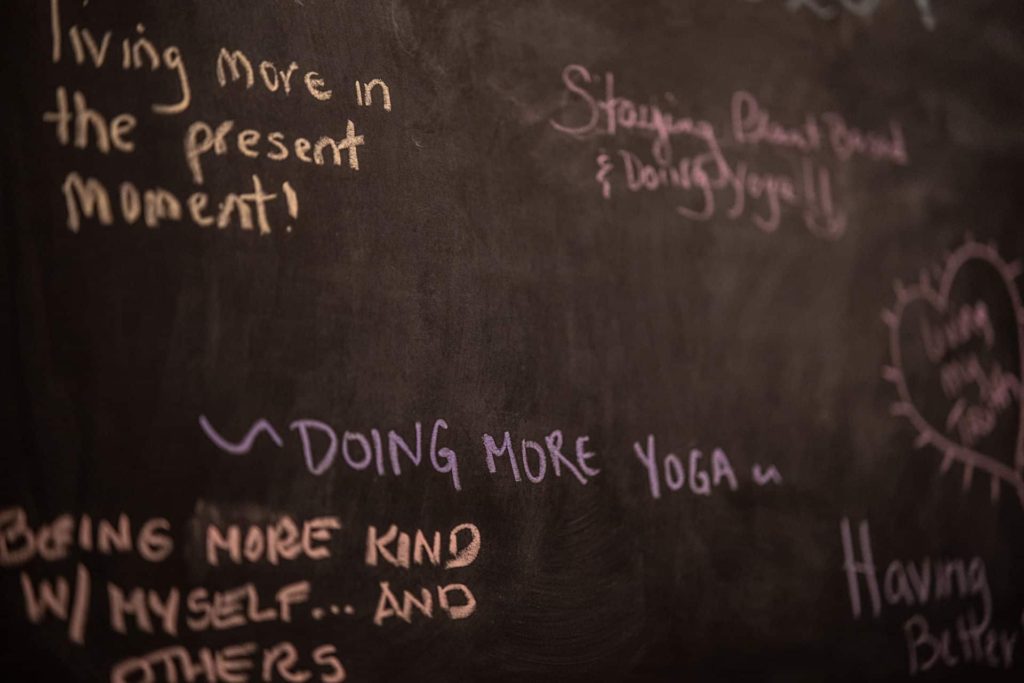 living more in
the present
moment!
Staying Plant Based
& Doing Yoga!!
living
my
~ DOING MORE YOGA ~
BEING MORE KIND
W/ MYSELF... AND
OTHERS
Having
Better